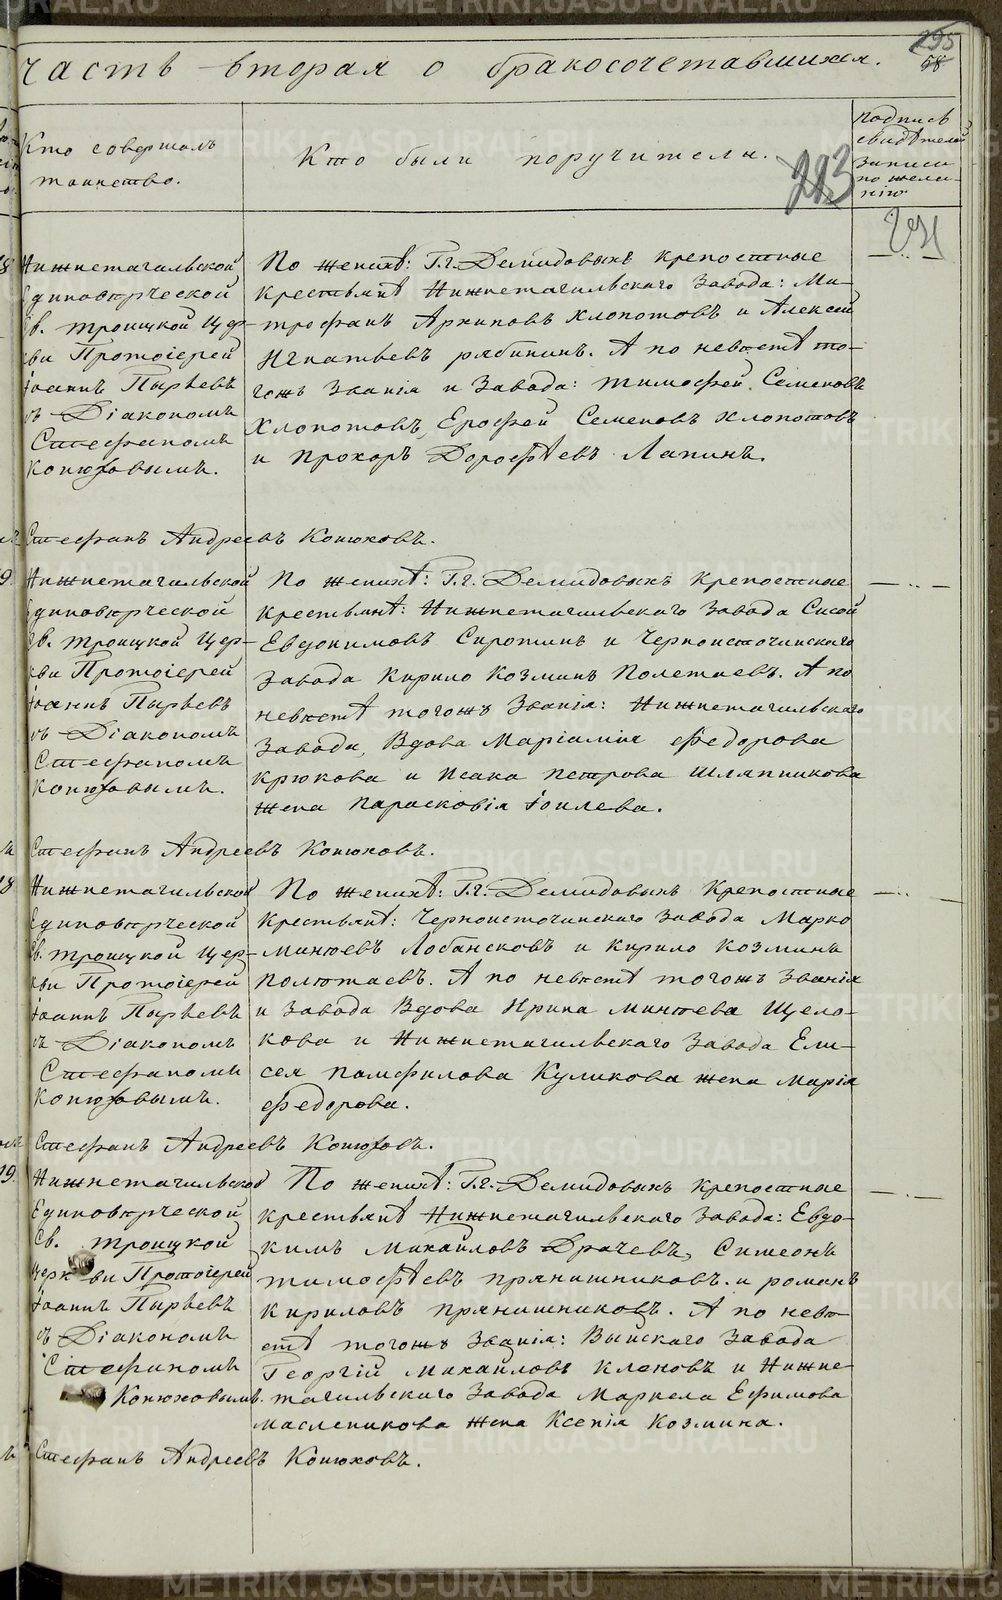 295
58
часть вторая о бракосочетавшихся.
Кто совершалъ
таинство.
Кто были поручители.
223
подпись
свидѣтелей
записи
по жела-
нію
Нижнетагильской
Единовѣрческой
Св. Троицкой Цер-
кви Протоіерей
Іоаннъ Пырьевъ
съ Діакономъ
Стефаномъ
Конюховымъ.
По женихѣ: Г.г. Демидовыхъ крепостные
крестьянѣ Нижнетагильскаго Завода: Ми-
трофанъ Архиповъ Хлопотовъ и Алексей
Игнатьевъ рябининъ. А по невѣстѣ то-
гожъ Званія и Завода: тимофей Семеновъ
Хлопотовъ, Ерофей Семеновъ Хлопотовъ
и Прохоръ Дорофѣевъ Лапинъ.
Стефанъ Андреевъ Конюховъ.
Нижнетагильской
Единовѣрческой
Св. Троицкой Цер-
кви Протоіерей
Іоаннъ Пырьевъ
съ Діакономъ
Стефаномъ
Конюховымъ.
По женихѣ: Г.г. Демидовыхъ крепостные
крестьянѣ: Нижнетагильскаго Завода Сисой
Евдокимовъ Сиротинъ и Черноисточинскаго
Завода Кирило Козминъ Полетаевъ. А по
невѣстѣ тогожъ Званія: Нижнетагильскаго
Завода, Вдова Маріамія Федорова
Крюкова и Исака Петрова Шляпникова
жена Парасковія Іоилева.
Стефанъ Андреевъ Конюховъ.
Нижнетагильской
Единовѣрческой
Св. Троицкой Цер-
кви Протоіерей
Іоаннъ Пырьевъ
съ Діакономъ
Стефаномъ
Конюховымъ.
По женихѣ: Г.г. Демидовыхъ Крепостные
Крестьянѣ: Черноисточинскаго Завода Марко
Минѣевъ Лобансковъ и Кирило Козминъ
Полѣтаевъ. А по невѣстѣ тогожъ Званія
и Завода Вдова Ирина Минѣева Щело-
кова и Нижнетагильскаго Завода Ели-
сея Памфилова Куликова жена Марія
Федорова.
Стефанъ Андреевъ Конюховъ.
Нижнетагильской
Единовѣрческой
Св. Троицкой
Церкви Протоіерей
Іоаннъ Пырьевъ
съ Діакономъ
Стефаномъ
Конюховымъ.
По женихѣ: Г.г. Демидовыхъ крепостные
крестьянѣ Нижнетагильскаго Завода: Евдо-
кимъ Михайловъ Драчевъ, Симеонъ
тимофѣевъ прянишниковъ. и романъ
Кириловъ прянишниковъ. А по невѣ-
стѣ тогожъ Званія: Выйскаго Завода
Георгій Михайловъ Клековъ и Нижне-
тагильскаго Завода Маркела Ефимова
масленикова жена Ксенія Козмина.
Стефанъ Андреевъ Конюховъ.
METRIKI.GASO-URAL.RU